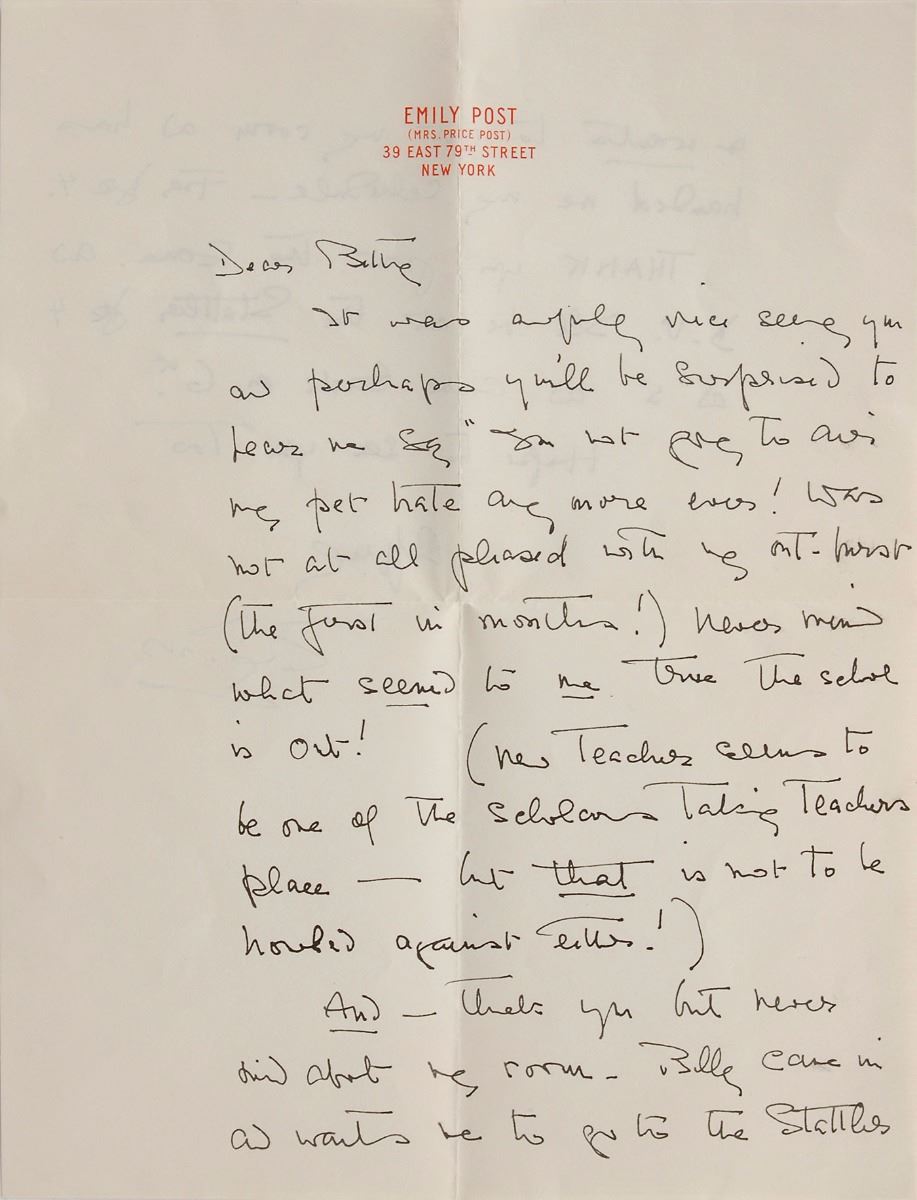 EMILY POST
(MRS. PRICE POST)
39 EAST 79TH STREET
NEW YORK
Dear
It was awfully nice seeing you
and perhaps you'll be surprised to
hear me say "I'm not going to
my pet hate any more ever! Was
not at all pleased with my out-burst
(the first in months!) Never mind
what seemed to me true the school
is out! (new Teacher seems to
be one of the scholars Taking Teachers
place — but that is not to be
howled against either!)
And — thank you but never
mind about my room - Billy came in
and wants me to go to the